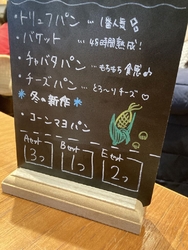 ・トリュフパン … 1番人気
・バケット … 48時間熟成!
・チャバタパン … もちもち食感
・チーズパン … とろ〜りチーズ♡
＊冬の新作＊
・コーンマヨパン
Aセット Bセット Eセット
3つ 1つ 2つ